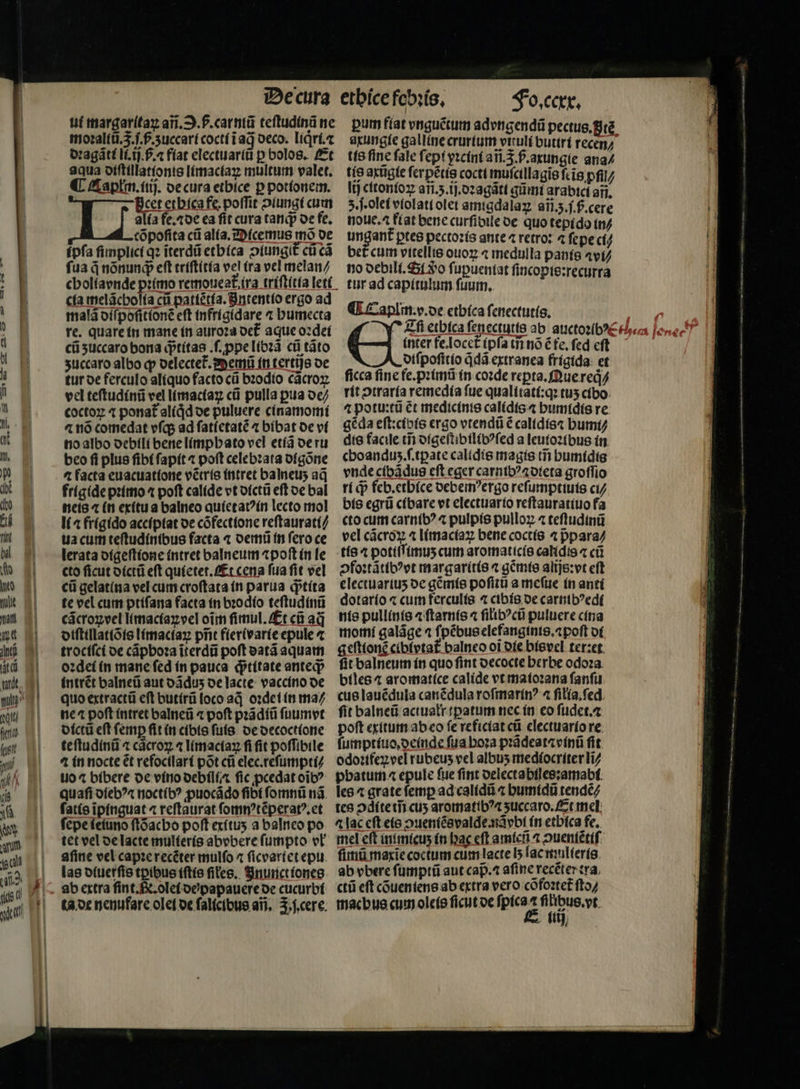 De cura ethice febris, Fo.ccrx.
ui margaritaꝝ añ.Ɔ.ß.carniũ testudinũ ne
moraliũ.ʒ̃.ſ.ß.zuccari cocti ĩ aq̃ deco. liq̃ri.⁊
dragãti li.ij.ß.⁊ fiat electuariũ ꝑ bolos. Et
aqua distillationis limaciaꝝ multum valet.
¶ Caplm.iiij. de cura ethice ꝑ potionem.
Hcet ethica fe. possit ↄiungi cum
alia fe.⁊ de ea fit cura tanq̃ de fe.
cõposita cũ alia. Dicemus mõ de
ipsa simplici qꝛ iterdũ ethica ↄiungit̃ cũ cã
sua q̃ nõnunq̃ est tristitia vel ira vel melan/
choliavnde primo remoueat̃.ira tristitia leti
cia melãcholia cũ patiẽtia. Intentio ergo ad
malã dispositionẽ est infrigidare ⁊ humecta
re. quare in mane in aurora det̃ aque ordei
cũ zuccaro bona q̃titas .s.ꝓpe librã cũ tãto
zuccaro albo ꝙ delectet̃. Demũ in tertijs de
tur de ferculo aliquo facto cũ brodio cãcroꝝ
vel testudinũ vel limaciaꝝ cũ pulla pua de/
coctoꝝ ⁊ ponat̃ aliq̃d de puluere cinamomi
⁊ nõ comedat vsqꝫ ad satietatẽ ⁊ bibat de vi
no albo debili bene limphato vel etiã de ru
beo si plus sibi sapit ⁊ post celebrata digõne
⁊ facta euacuatione vẽtris intret balneuꝫ aq̃
frigide primo ⁊ post calide vt dictũ est de bal
neis ⁊ in exitu a balneo quietatꝰin lecto mol
li ⁊ frigido accipiat de cõfectione restaurati/
ua cum testudinibus facta ⁊ demũ in sero ce
lerata digestione intret balneum ⁊post in le
cto sicut dictũ est quietet. Et cena sua sit vel
cũ gelatina vel cum crostata in parua q̃tita
te vel cum ptisana facta in brodio testudinũ
cãcroꝝvel limaciaꝝvel oĩm simul. Et cũ aq̃
distillatiõis limaciaꝝ pñt fierivarie epule ⁊
trocisci de cãphora iterdũ post datã aquam
ordei in mane sed in pauca q̃titate anteq̃
intrẽt balneũ aut dãduꝫ de lacte vaccino de
quo extractũ est butirũ loco aq̃ ordei in ma/
ne ⁊ post intret balneũ ⁊ post prãdiũ suumvt
dictũ est semꝑ sit in cibis suis de decoctione
testudinũ ⁊ cãcroꝝ ⁊ limaciaꝝ si sit possibile
⁊ in nocte ẽt refocilari põt cũ elec.resumpti/
uo ⁊ bibere de vino debili/⁊ sic ꝓcedat oĩbꝰ
quasi diebꝰ⁊ noctibꝰ ꝓuocãdo sibi somnũ nã
satis ĩpinguat ⁊ restaurat somnꝰtẽperatꝰ.et
sepe ieiuno stõacho post exituꝫ a balneo po
tet vel de lacte mulieris abvbere sumpto vl̓
asine vel capre recẽter mulso ⁊ sicvariet epu
las diuersis tpibus istis siles. Inunctiones
ab extra sint.℞.olei deꝰpapauere de cucurbi
ta.de nenufare olei de salicibus añ. ʒ̃.ſ.cere.
pum fiat vnguẽtum advngendũ pectus.Itẽ
axungie galline crurium vituli butiri recen/
tis sine sale sepi yrcini añ.ʒ̃.ß.axungie ana/
tis axũgie serpẽtis cocti muscillagis ſeĩs psil/
lij citonioꝝ añ.ʒ.ij.dragãti gũmi arabici añ.
ʒ.ſ.olei violati olei amigdalaꝝ añ.ʒ.ſ.ß.cere
noue.⁊ fiat bene cursibile de quo tepido in/
ungant̃ ptes pectoris ante ⁊ retro: ⁊ sepe ci/
bet̃ cum vitellis ouoꝝ ⁊ medulla panis ⁊vi/
no debili. Si ꝟo supueniat sincopis:recurra
tur ad capitulum suum.
¶ Caplm.v.de ethica senectutis.
Tsi ethica senectutis ab auctoribꝰ
inter fe.locet̃ ipsa tñ nõ ẽ fe. sed est
dispositio q̃dã extranea frigida et
sicca sine fe.primũ in corde repta. Que req̃/
rit ↄtraria remedia sue qualitati:qꝛ tuꝫ cibo
⁊ potu:tũ ẽt medicinis calidis ⁊ humidis re
gẽda est:cibis ergo vtendũ ẽ calidis⁊ humi/
dis facile tñ digestibilibꝰsed a leuioribus in
choanduꝫ.s.tpate calidis magis tñ humidis
vnde cibãdus est eger carnibꝰ⁊dieta grossio
ri q̃ feb.ethice debemꝰergo resumptiuis ci/
bis egrũ cibare vt electuario restauratiuo fa
cto cum carnibꝰ ⁊ pulpis pulloꝝ ⁊ testudinũ
vel cãcroꝝ ⁊ limaciaꝝ bene coctis ⁊ p̃para/
tis ⁊ potissimuꝫ cum aromaticis calidis ⁊ cũ
ↄfortãtibꝰvt margaritis ⁊ gẽmis alijs:vt est
electuariuꝫ de gẽmis positũ a mesue in anti
dotario ⁊ cum ferculis ⁊ cibis de carnibꝰedi
nis pullinis ⁊ starnis ⁊ silibꝰcũ puluere cina
momi galãge ⁊ spẽbus elefanginis.⁊post di
gestionẽ cibivtat̃ balneo oĩ die bisvel ter:et
sit balneum in quo sint decocte herbe odora
biles ⁊ aromatice calide vt maiorana sansu
cus lauẽdula canẽdula rosmarinꝰ ⁊ silia.sed
sit balneũ actualr̃ tpatum nec in eo sudet.⁊
post exitum ab eo se reficiat cũ electuario re
sumptiuo,deinde sua hora prãdeat⁊vinũ sit
odoriferꝝ vel rubeuꝫ vel albuꝫ mediocriter li/
phatum ⁊ epule sue sint delectabiles:amabi
les ⁊ grate semꝑ ad calidũ ⁊ humidũ tendẽ/
tes ↄdite tñ cuꝫ aromatibꝰ⁊ zuccaro. Et mel
⁊ lac est eis ↄueniẽsvalde.nãvbi in ethica fe.
mel est inimicuꝫ in hac est amicũ ⁊ ↄueniẽtis
simũ maxĩe coctum cum lacte lꝫ lac mulieris
ab vbere sumptũ aut cap̃.⁊ asine recẽter tra
ctũ est cõueniens ab extra vero cõfortet̃ sto/
machus cum oleis sicut de spica ⁊ silibus.vt
E iiij